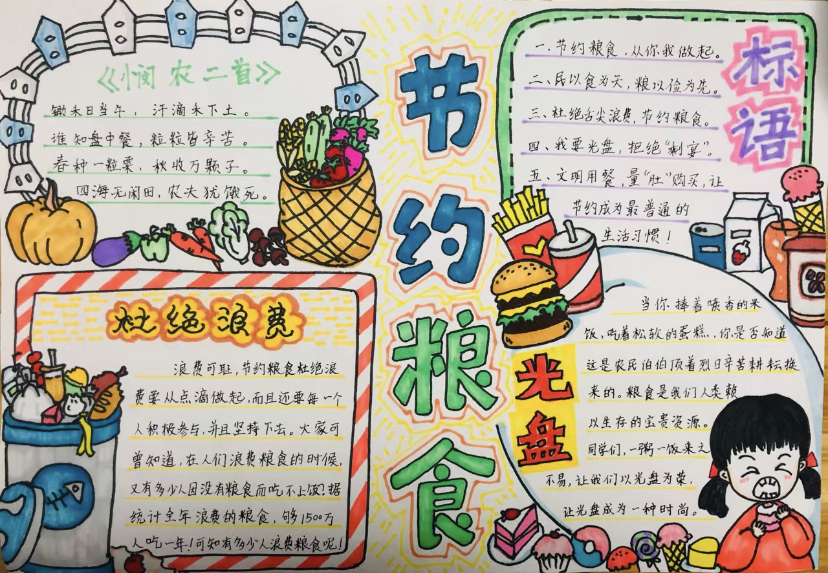 《悯农二首》
锄禾日当午，汗滴禾下土。
谁知盘中餐，粒粒皆辛苦。
春种一粒粟，秋收万颗子。
四海无闲田，农夫犹饿死。
杜绝浪费
浪费可耻，节约粮食杜绝浪
费要从点滴做起，而且还要每一个
人积极参与，并且坚持下去。大家可
曾知道，在人们浪费粮食的时候，
又有多少人因没有粮食而吃不上饭？据
统计全年浪费的粮食，够1500万
人吃一年！可知有多少人浪费粮食呢！
节约粮食
标语
一、节约粮食，从你我做起。
二、民以食为天，粮以俭为先。
三、杜绝舌尖浪费，节约粮食。
四、我要光盘，拒绝“剩宴”。
五、文明用餐，量“肚”购买，让
节约成为最普通的
生活习惯！
光盘
当你捧着喷香的米
饭，吃着松软的蛋糕，你是否知道
这是农民伯伯顶着烈日辛苦耕耘换
来的。粮食是我们人类赖
以生存的宝贵资源。
同学们，一粥一饭来之
不易，让我们以光盘为荣，
让光盘成为一种时尚。